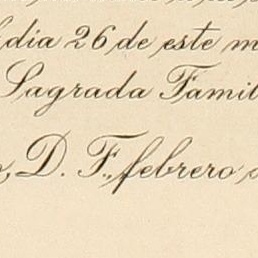 dia 26 de este m
Sagrada Famil
D. F., febrero